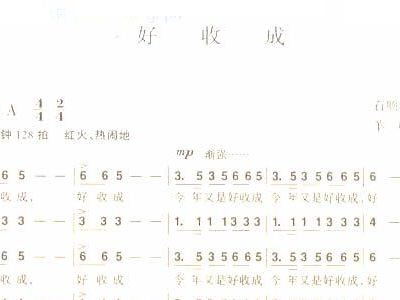 好 收 成
A 4/4 2/4
钟 128 拍 红火、热闹地
mp 渐强……
6 5 — — | 6 6 5 — — | 3. 5 3 5 6 6 5 | 3. 5 3 5 6 6 5 | 6 —
收 成, 好 收 成 今 年 又 是 好 收 成 今 年 又 是 好 收 成, 好
3 3 — — | 3 3 3 — — | 1. 1 1 1 3 3 3 | 1. 1 1 1 3 3 3 | 4 —
6 5 — — | 6 6 5 — — | 3. 5 3 5 6 6 5 | 3. 5 3 5 6 6 5 | 6 —
收 成, 好 收 成 今 年 又 是 好 收 成 今 年 又 是 好 收 成, 好